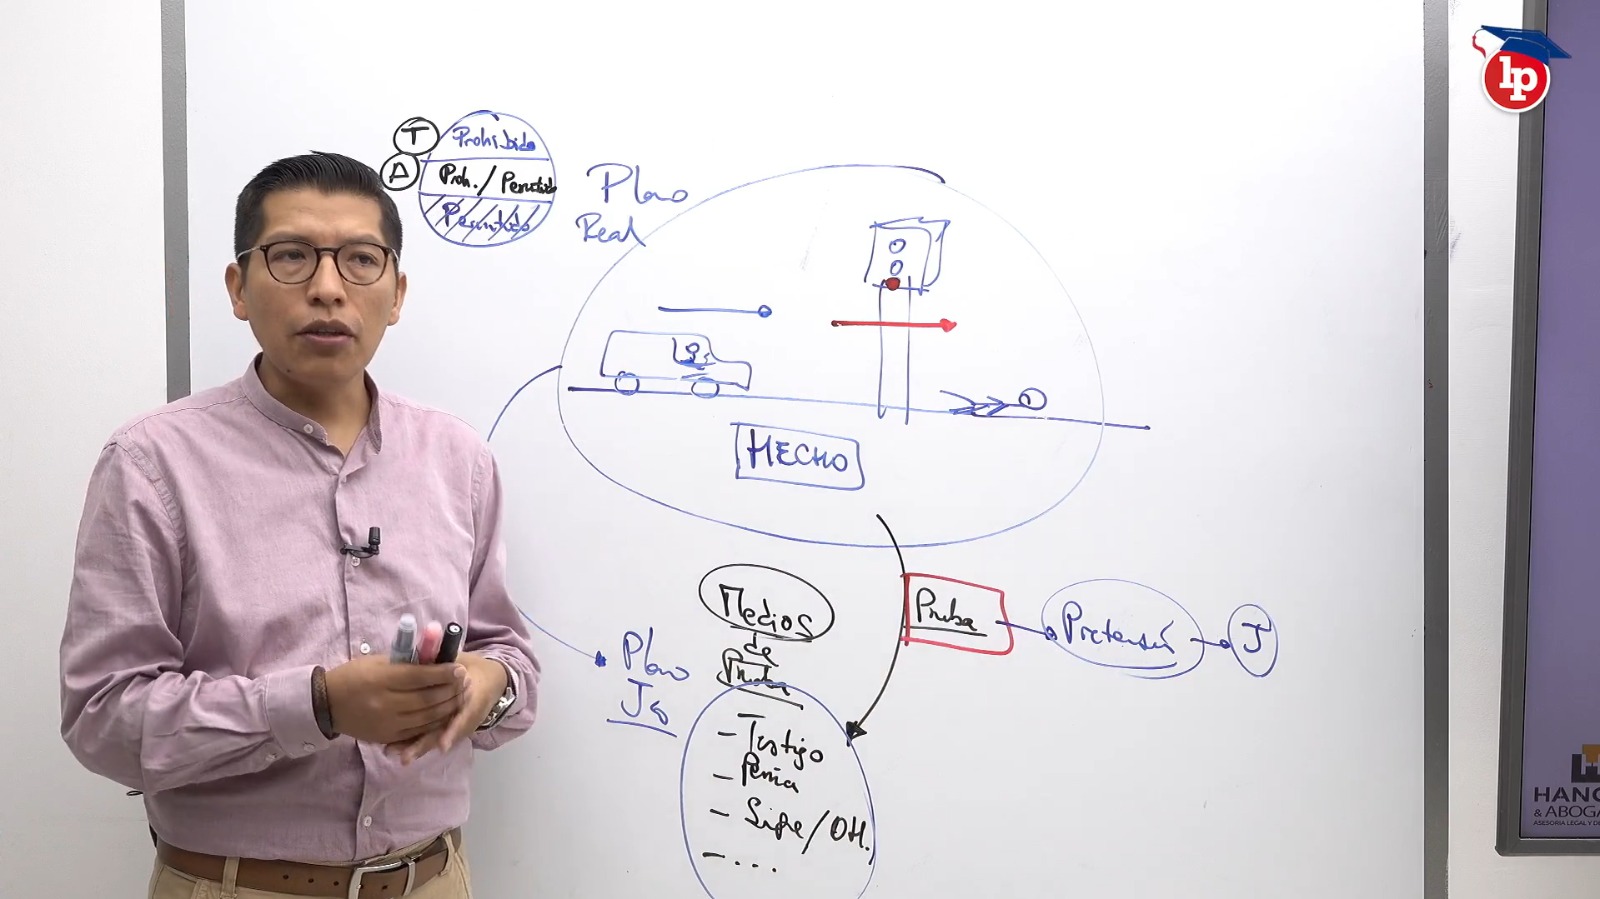 lp
T
Prohibido
A
Proh./Permitido
Permitido
Plano
Real
HECHO
Medios
de
Prueba
Prueba
Pretensión
J
Plano
- Testigo
- Pericia
/OH.
- ...
HANC
& ABOGA
ASESORIA LEGAL Y DE